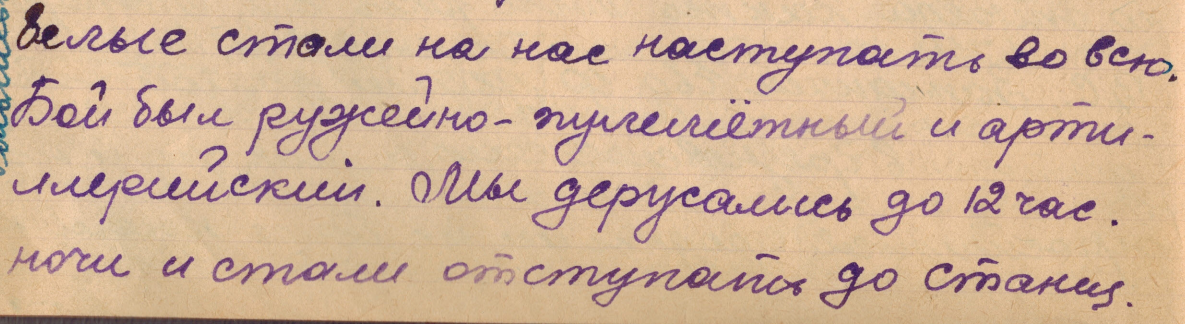 белые стали на нас наступать во всю.
Бой был ружейно-пулемётный и арти-
ллерийский. Мы держались до 12 час.
ночи и стали отступать до станиц.